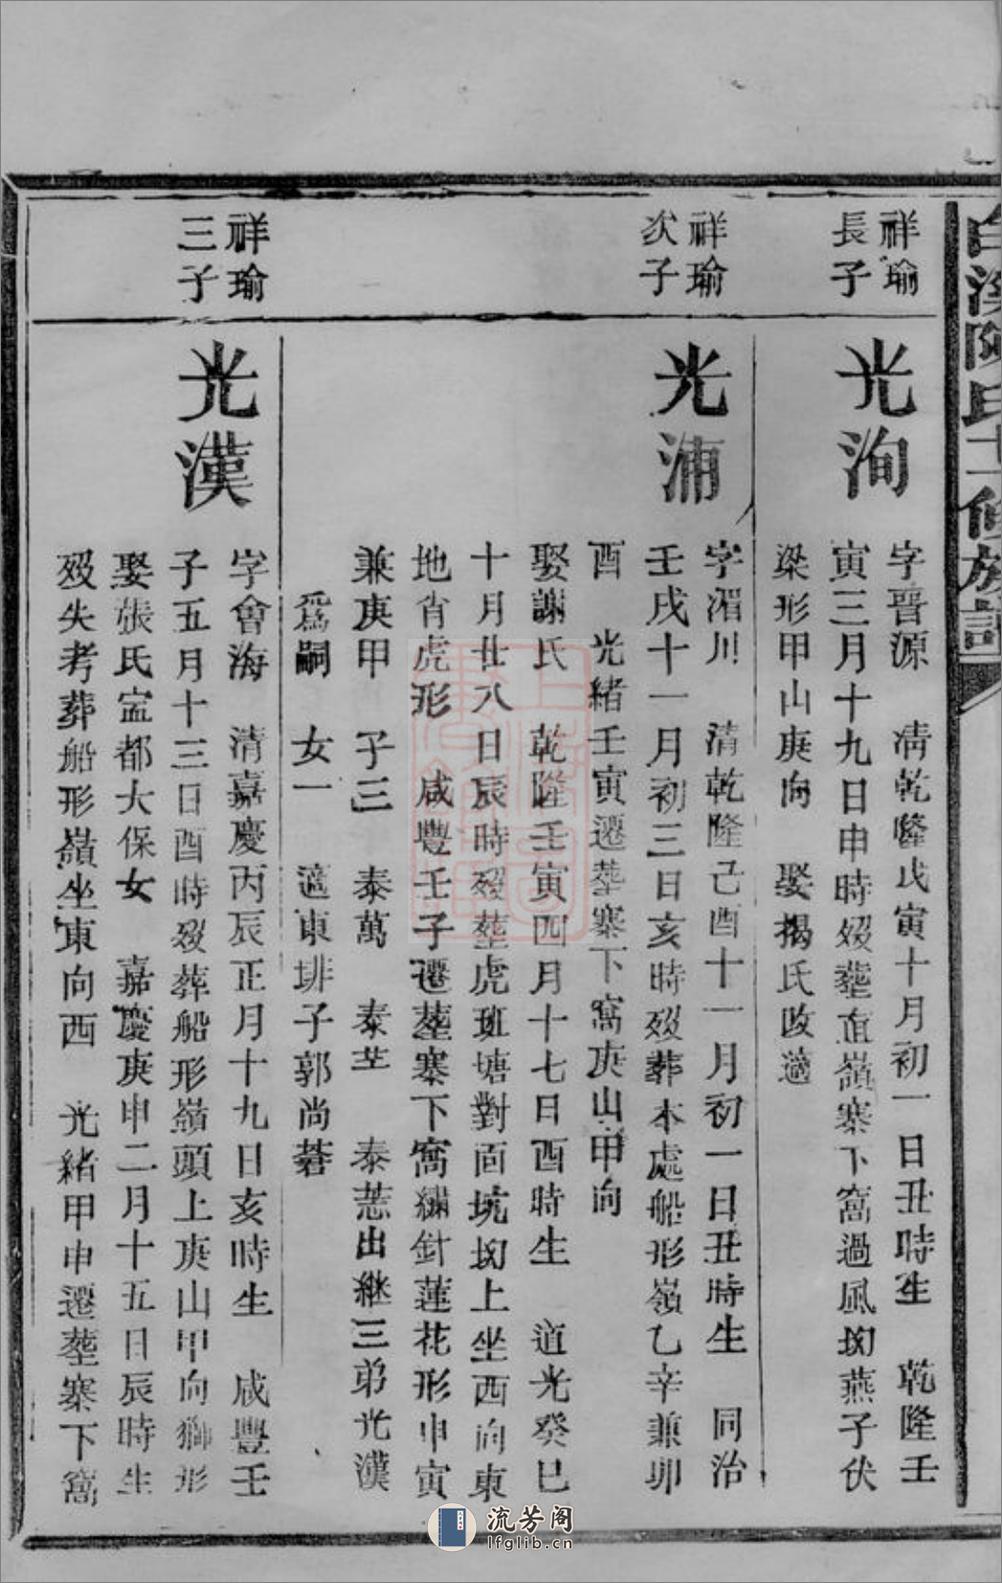 白溪陳氏十一修族譜
祥瑜
長子
光洵
字晉源　清乾隆戊寅十月初一日丑時生　乾隆壬
寅三月十九日申時歿塟直嶺寨下窩過風坳燕子伏
梁形甲山庚向　娶揭氏改適
祥瑜
次子
光浦
字湄川　清乾隆己酉十一月初一日丑時生　同治
壬戌十一月初三日亥時歿葬本處船形嶺乙辛兼卯
酉　光緒壬寅遷塟寨下窩庚山甲向
娶謝氏　乾隆壬寅四月十七日酉時生　道光癸巳
十月廿八日辰時歿塟虎班塘對面坑坳上坐西向東
地肖虎形　咸豐壬子遷塟寨下窩繡針蓮花形申寅
兼庚甲　子三　泰萬　泰芏　泰莣出継三弟光漢
爲嗣　女一　適東排子郭尚萶
祥瑜
三子
光漢
字會海　清嘉慶丙辰正月十九日亥時生　咸豐壬
子五月十三日酉時歿葬船形嶺頭上庚山甲向獅形
娶張氏寍都大保女　嘉慶庚申二月十五日辰時生
歿失考葬船形嶺坐東向西　光緒甲申遷塟寨下窩
流芳阁
lfglib.cn